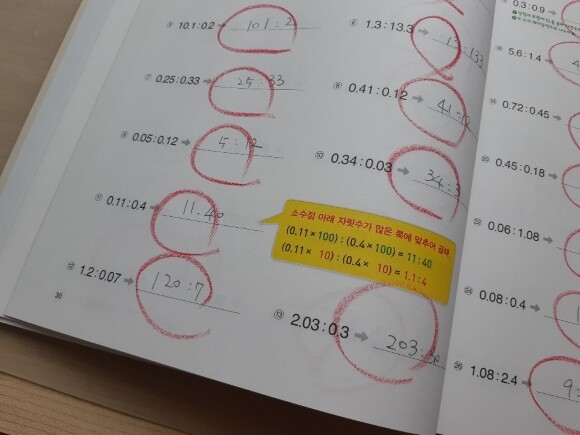 ⑤ 10.1:0.2 → 101:2
⑥ 1.3:13.3 → 13:133
⑦ 0.25:0.33 → 25:33
⑧ 0.41:0.12 → 41:12
⑨ 0.05:0.12 → 5:12
⑩ 0.34:0.03 → 34:3
⑪ 0.11:0.4 → 11:40
소수점 아래 자릿수가 많은 쪽에 맞추어 곱해
(0.11×100):(0.4×100)=11:40
(0.11× 10):(0.4× 10)=1.1:4
⑫ 1.2:0.07 → 120:7
⑬ 2.03:0.3 → 203:30
30
0.3:0.9 →
5.6:1.4 →
0.72:0.45 →
0.45:0.18 →
0.06:1.08
0.08:0.4 →
1.08:2.4 →